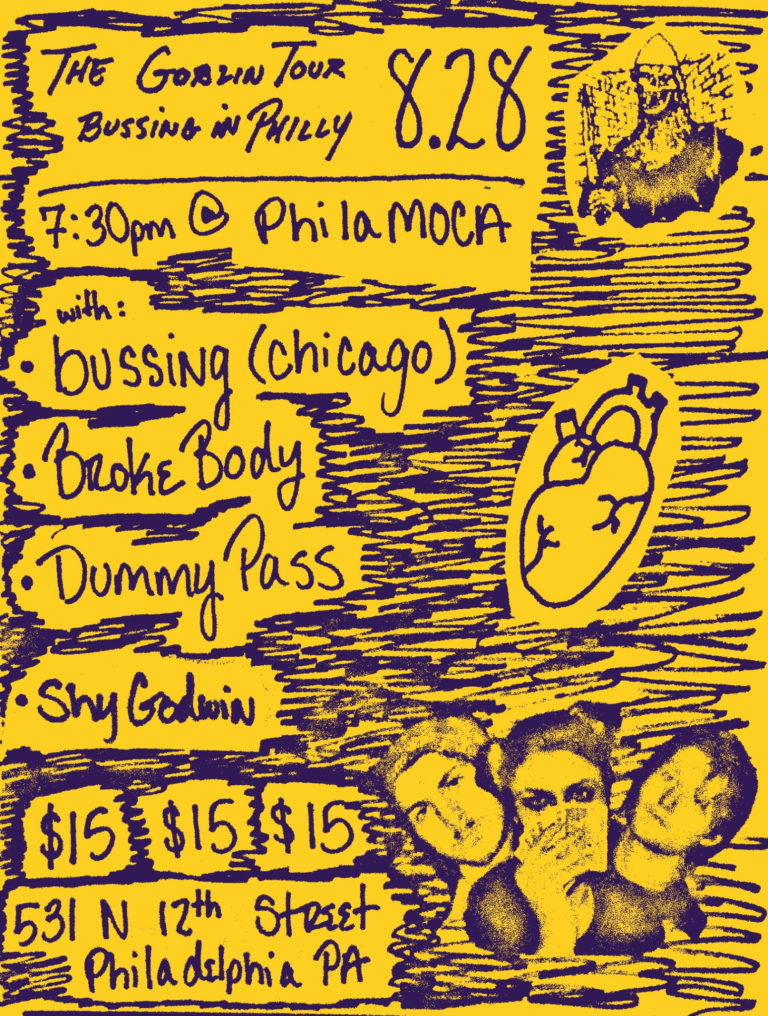 The Goblin Tour
Bussing in Philly
8.28
7:30pm @ PhilaMOCA
with:
• bussing (chicago)
• Broke Body
• Dummy Pass
• Shy Godwin
$15 $15 $15
531 N 12th Street
Philadelphia PA